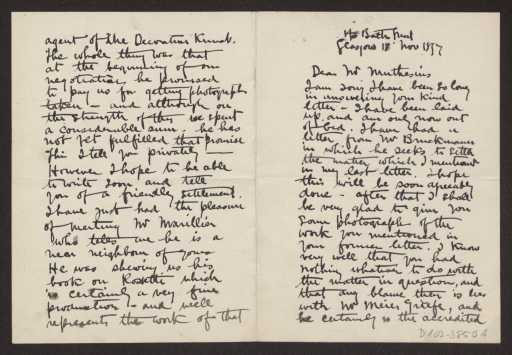 Bath Street
Glasgow 18 Nov 1897
Dear Mr Muthesius
I am sorry I have been so long
in answering your kind
letter – I have been laid
up, and am only now out
of bed. I have had a
letter from Mr Bruckmann
in which he seeks to settle
the matter which I mentioned
in my last letter. I hope
this will be soon agreeably
done – after that I shall
be very glad to give you
some photographs of the
work you mentioned in
your former letter. I know
very well that you had
nothing whatever to do with
the matter in question, and
that any blame there is lies
with Mr Meier Graefe, and
he certainly is the accredited
D 102-3850 a
agent of the Decorative Kunst.
The whole thing was that
at the beginning of our
negotiation, he promised
to pay us for getting photographs
taken – and although on
the strength of this we spent
a considerable sum, he has
not yet fulfilled that promise
This I tell you privately
However I hope to be able
to write soon and tell
you of a friendly settlement.
I have just had the pleasure
of meeting Mr Marillier
who tells me he is a
near neighbour of yours
He was shewing us his
book on Rossetti which
is certainly a very fine
production – and well
represents the work of that